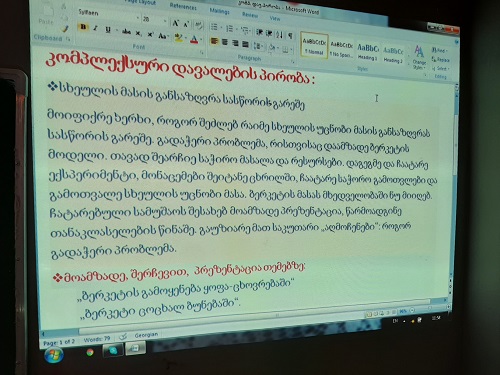 გოგა. დიფ.პირობა - Microsoft Word
Page Layout References Mailings Review View
Sylfaen 28
Clipboard Font Paragraph Styles Editing
AaBbCcDc AaBbCcDc AaBbC AaBbCc
¶ Normal ¶ No Spaci... Heading 1 Heading 2 Change Styles
Find
Replace
Select
კომპლექსური დავალების პირობა :
❖სხეულის მასის განსაზღვრა სასწორის გარეშე
მოიფიქრე ხერხი, როგორ შეძლებ რაიმე სხეულის უცნობი მასის განსაზღვრას
სასწორის გარეშე. გადაჭერი პრობლემა, რისთვისაც დაამზადე ბერკეტის
მოდელი. თავად შეარჩიე საჭირო მასალა და რესურსები. დაგეგმე და ჩაატარე
ექსპერიმენტი, მონაცემები შეიტანე ცხრილში, ჩაატარე საჭირო გამოთვლები და
გამოთვალე სხეულის უცნობი მასა. ბერკეტის მასას მხედველობაში ნუ მიიღებ.
ჩატარებული სამუშაოს შესახებ მოამზადე პრეზენტაცია, წარმოადგინე
თანაკლასელების წინაშე. გაუზიარე მათ საკუთარი „აღმოჩენები“: როგორ
გადაჭერი პრობლემა.
❖მოამზადე, შერჩევით, პრეზენტაცია თემებზე:
„ბერკეტის გამოყენება ყოფა-ცხოვრებაში“
„ბერკეტი ცოცხალ ბუნებაში“.
Page: 1 of 2 Words: 79 Georgian
EN 11:58